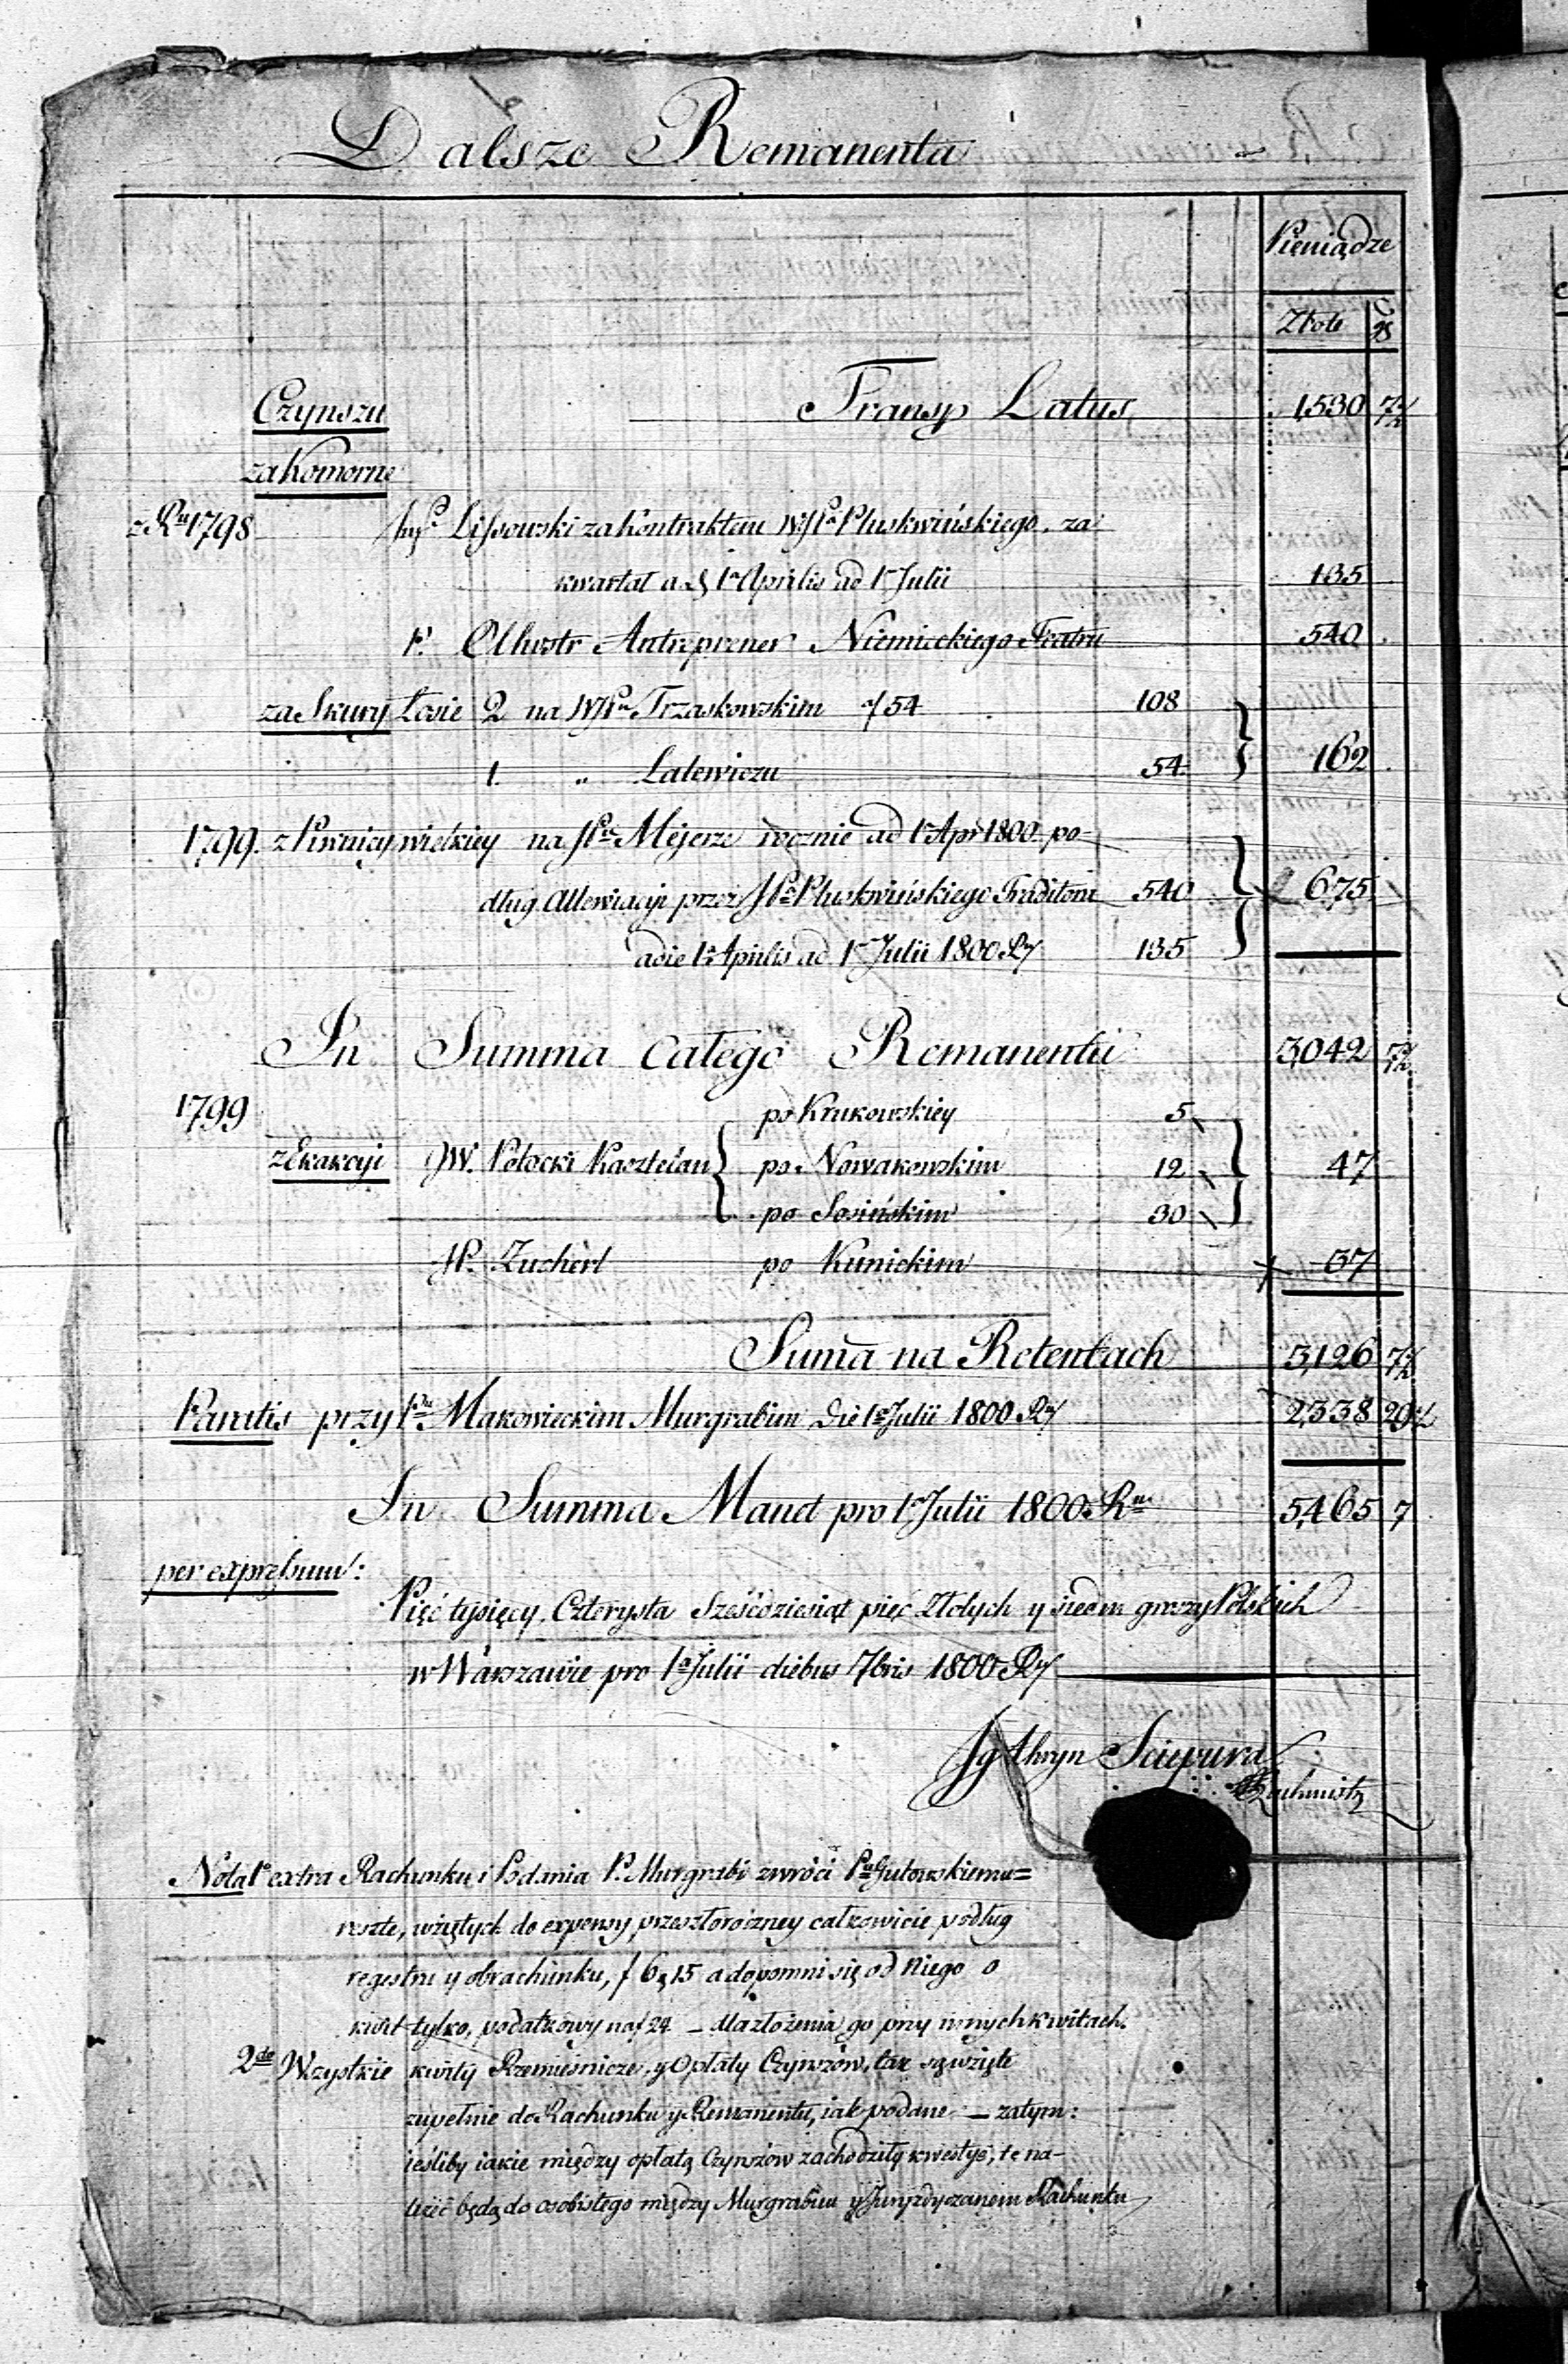 Dalsze Remanenta
Pieniądze
Złote gr
Czynszu Transp Latus 1,530 7½
za Komorne
z Ru 1798 Lissowski za Kontraktem WJPa Pluskwińskiego, za
kwartał a 1a Aprilis ad 1m Julii 135
P. Antreprener Niemieckiego Teatru 540
za Skury Łosie 2 na WPu Trzaskowskim a/54 108
162
1. „ Lalewiczu 54.
1799. z Piwnicy wielkiey na JPu Mejerze rocznie ad 1m Apr 1800. po-
dług Allewiacyi przez JPa Pluskwińskiego Traditora 540 675
a die 1a Aprilis ad 1m Julii 1800 Ry 135
In Summa Całego Remanentu 3,042 7½
1799 po Krukowskiey 5
z Exakcyi JW. Potocki Kasztelan po Nowakowskim 12 47
po Sosińskim 30
JP. Zucherl po Kunickim 37
Suma na Retentach 3,126 7½
Paratis przy Pu Makowieckim Murgrabim Die 1a Julii 1800 Ry 2,338 29½
In Summa Manet pro 1a Julii 1800 Ru 5,465 7
per expressum:
Pięć tysięcy, Czterysta Sześćdziesiąt pięć Złotych y siedm groszy Polskich
w Warszawie pro 1a Julii diebus 7bris 1800 Ry
Sciepura
Nota 1o extra Rachunku i Podania P. Murgrabi zwróci Pu Gutowskiemu=
reszte, wziętych do expensy, przeszłoroczney całkowicie podług
regestru y obrachunku, f 6,,15 a dopomni się od Niego o
kwit tylko, podatkowy na f 24 – dla złożenia go przy innych kwitach.
2do Wszystkie kwity Rzemieśnicze, y Opłaty Czynszów, tak są wzięte
zupełnie do Rachunku y Remanentu, iak podane – zatym:
ieśliby iakie między opłatą Czynszów zachodziły kwestye, te na-
leżeć będą do osobistego między Murgrabim y Juryzdyczanem Rachunku